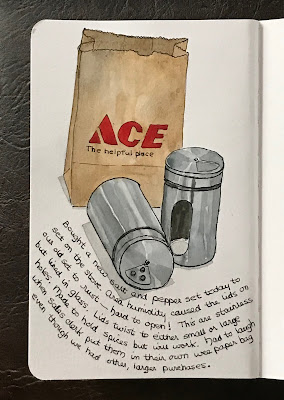 ACE
The helpful place
Bought a new salt and pepper set today to
set on the stove. and humidity caused the lids on
our old set to just hard to open! These are stainless
but lined in glass. Lids twist to either small or large
holes. Made to hold spices but will work. Had to laugh
when sales clerk put them in their own wee paper bag
even though we had other, larger purchases.